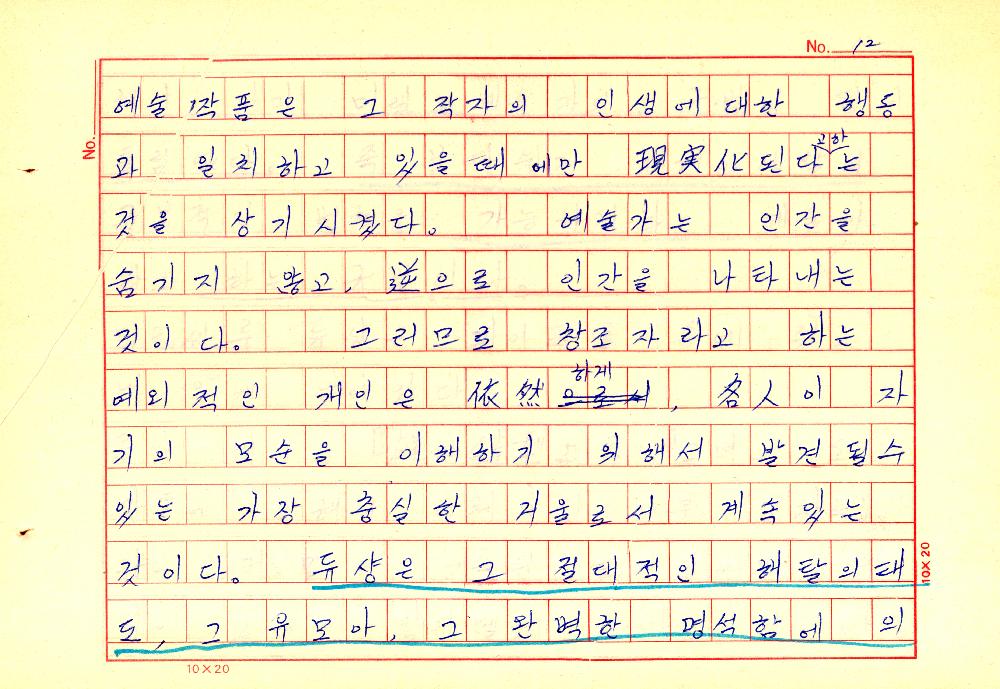 No. 12
No.
예술작품은 그 작자의 인생에 대한 행동
과 일치하고 있을때에만 現実化된다고하는
것을 상기시켰다. 예술가는 인간을
숨기지 않고, 逆으로 인간을 나타내는
것이다. 그러므로 창조자라고 하는
예외적인 개인은 依然하게, 各人이 자
기의 모순을 이해하기 위해서 발견될수
있는 가장 충실한 거울로서 계속있는
것이다. 듀샹은 그 절대적인 해탈의태
도, 그 유모아, 그 완벽한 명석함에 의
10×20
10×20